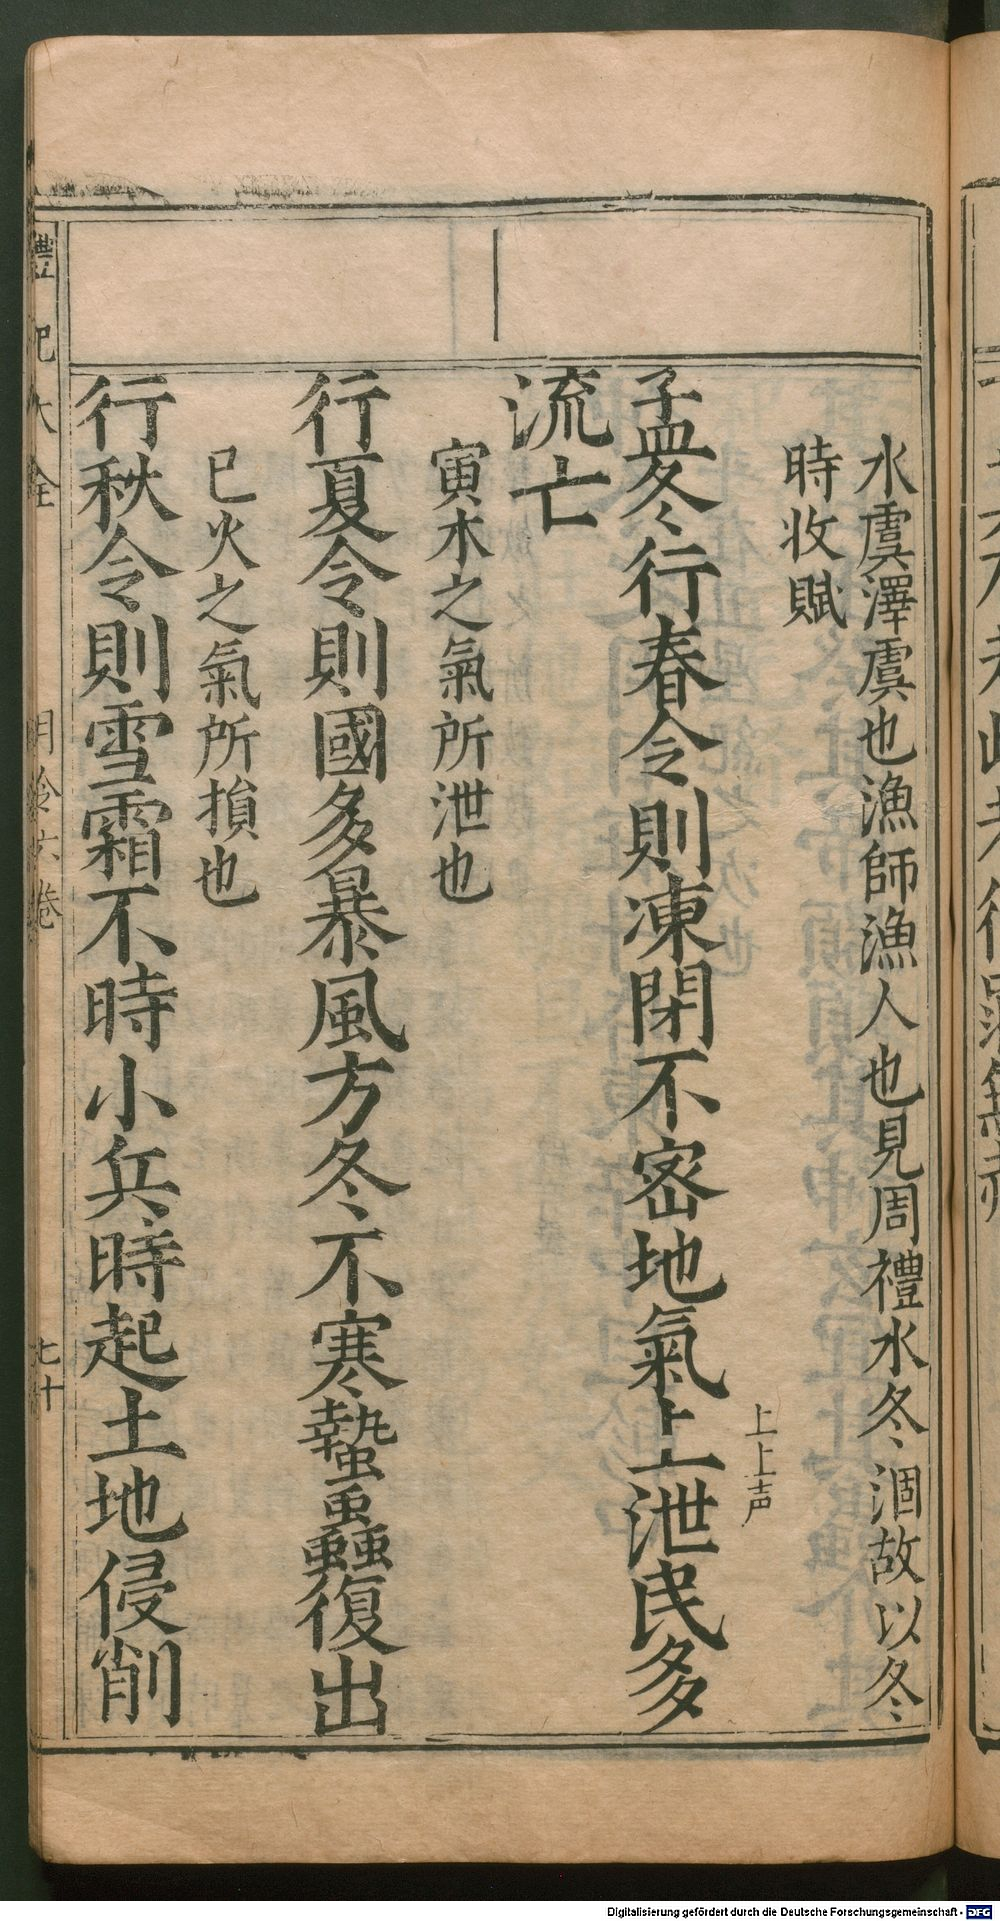 水虞澤虞也漁師漁人也見周禮水冬涸故以冬
時收賦
孟冬行春令則凍閉不密地氣上泄民多
上上声
流亡
寅木之氣所泄也
行夏令則國多暴風方冬不寒蟄蟲復出
巳火之氣所損也
行秋令則雪霜不時小兵時起土地侵削
禮記大全
月令六卷
七十
Digitalisierung gefördert durch die Deutsche Forschungsgemeinschaft - DFG